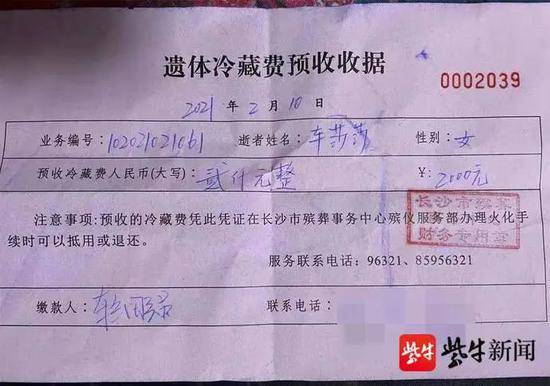 遗体冷藏费预收收据
0002039
2021 年 2 月 10 日
业务编号: 102021021061 逝者姓名: 车莎莎 性别: 女
预收冷藏费人民币(大写): 贰仟元整 ¥: 2000元
注意事项:预收的冷藏费凭此凭证在长沙市殡葬事务中心殡仪服务部办理火化手
续时可以抵用或退还。
长沙市殡葬
财务专用章
服务联系电话: 96321、85956321
缴款人: 车 联系电话:
紫牛 紫牛新闻